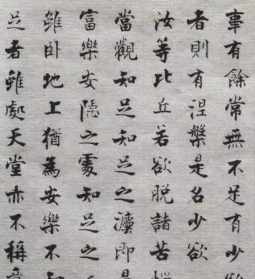 事有餘常無不足有少
者則有涅槃是名少欲
汝等比丘若欲脫諸苦惱
當觀知足知足之灋即是
富樂安隱之處知足之
雖卧地上猶為安樂不知
足者雖處天堂亦不稱意